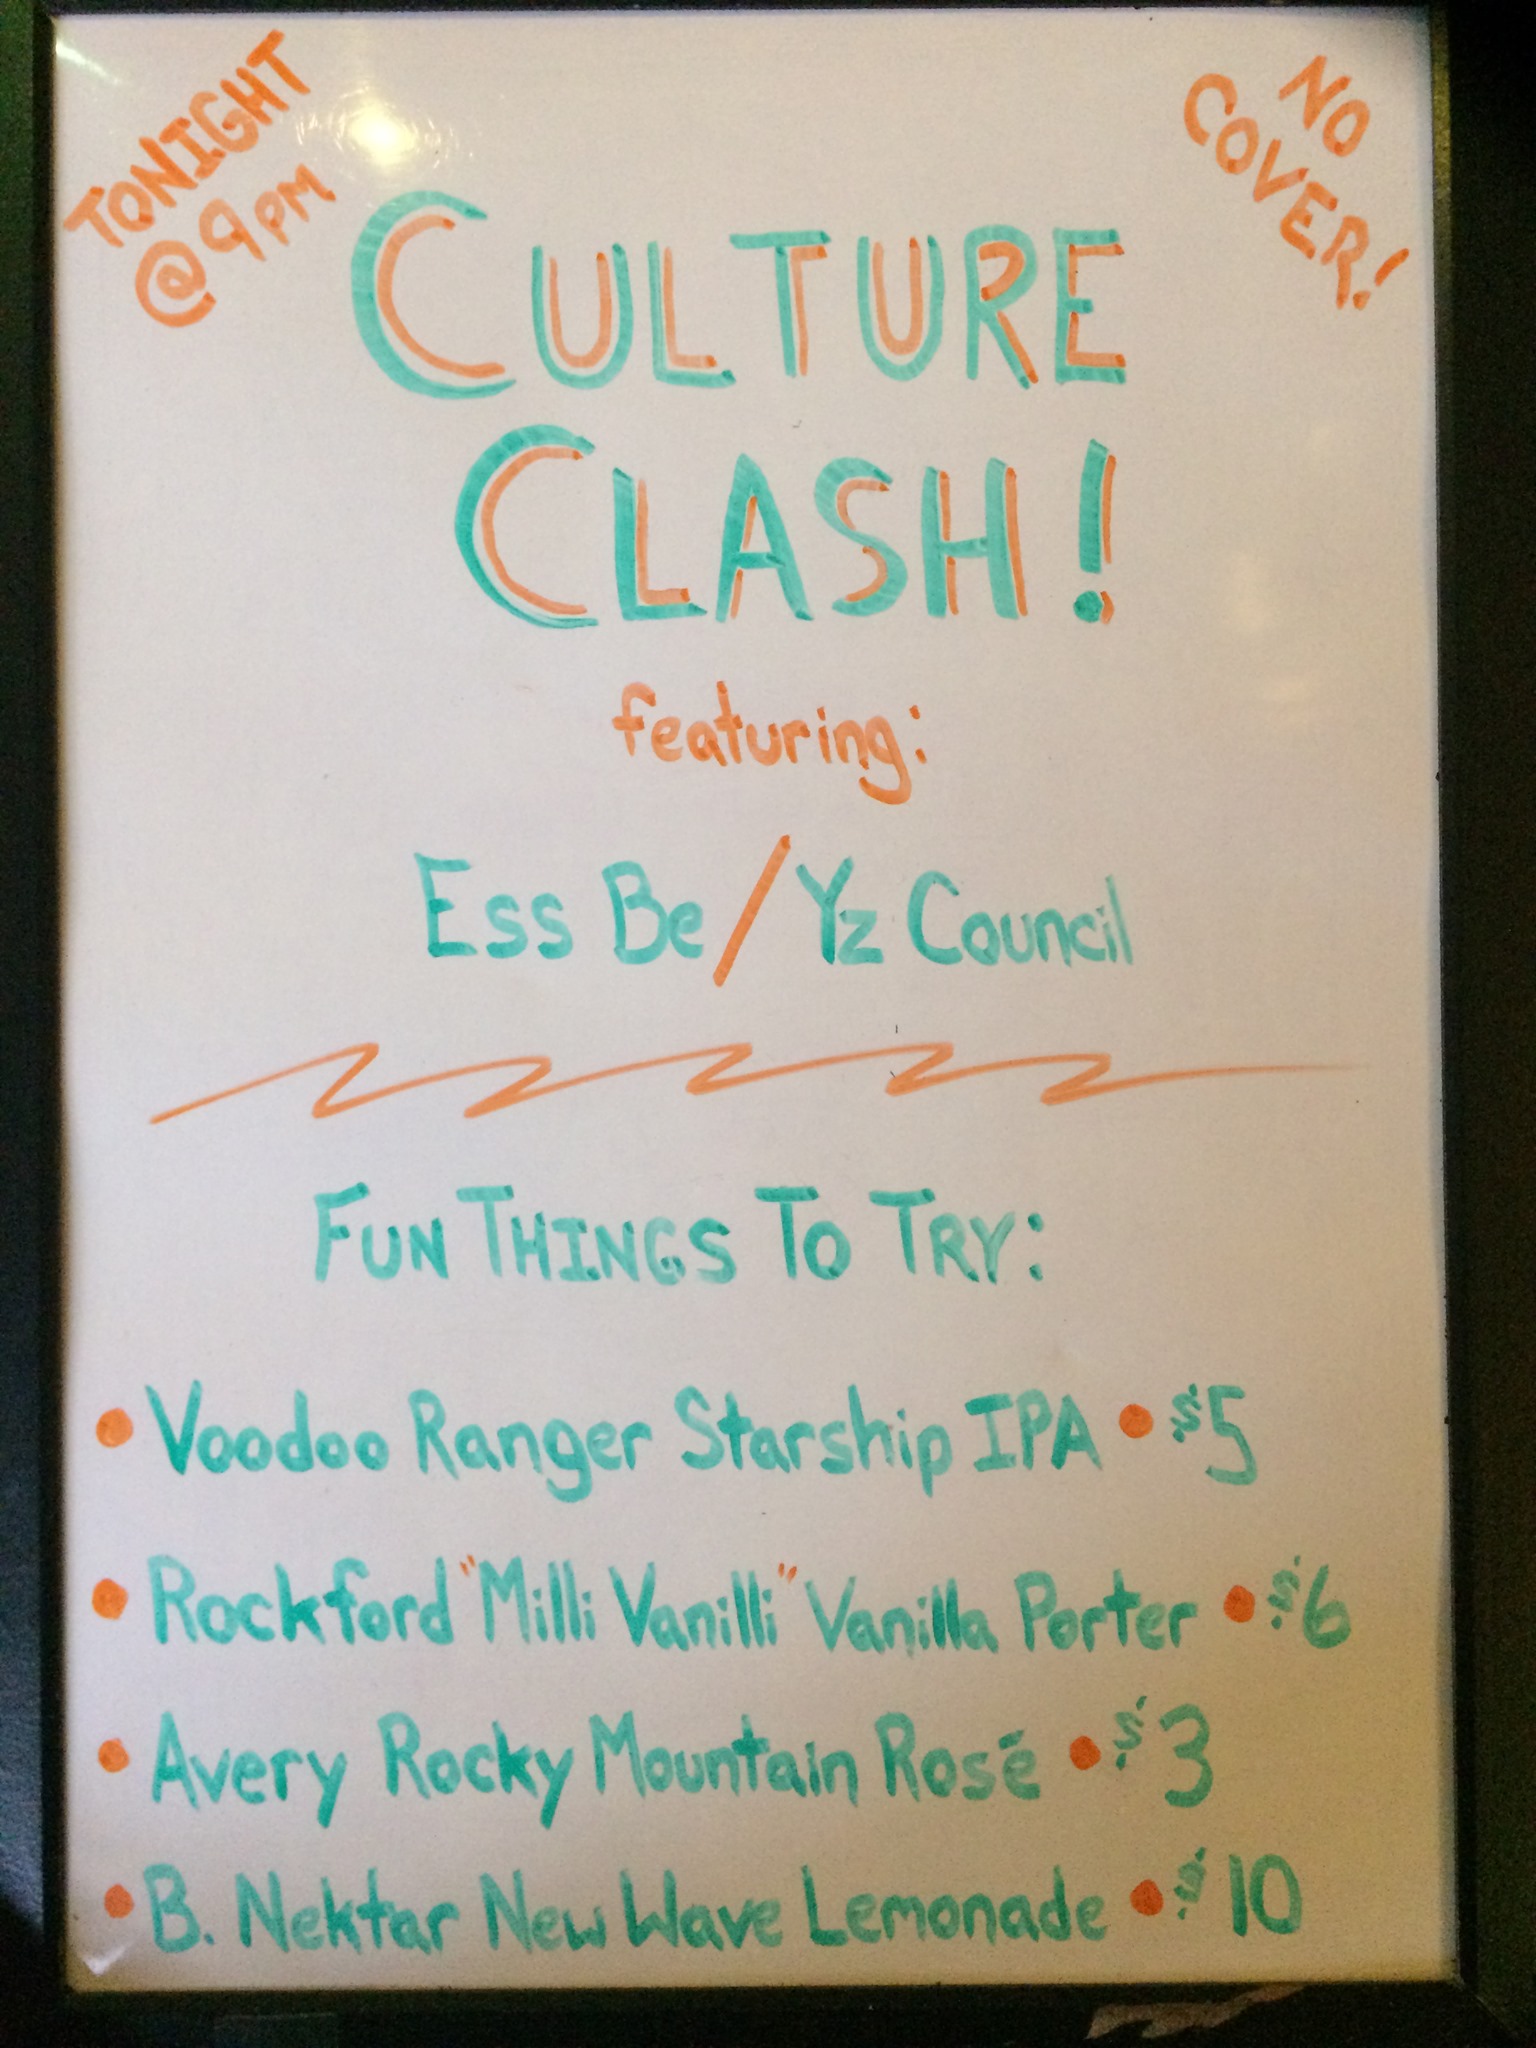 TONIGHT
@ 9 PM
NO
COVER!
CULTURE
CLASH!
featuring:
Ess Be / Yz Council
FUN THINGS TO TRY:
• Voodoo Ranger Starship IPA • $5
• Rockford "Milli Vanilli" Vanilla Porter • $6
• Avery Rocky Mountain Rosé • $3
• B. Nektar New Wave Lemonade • $10